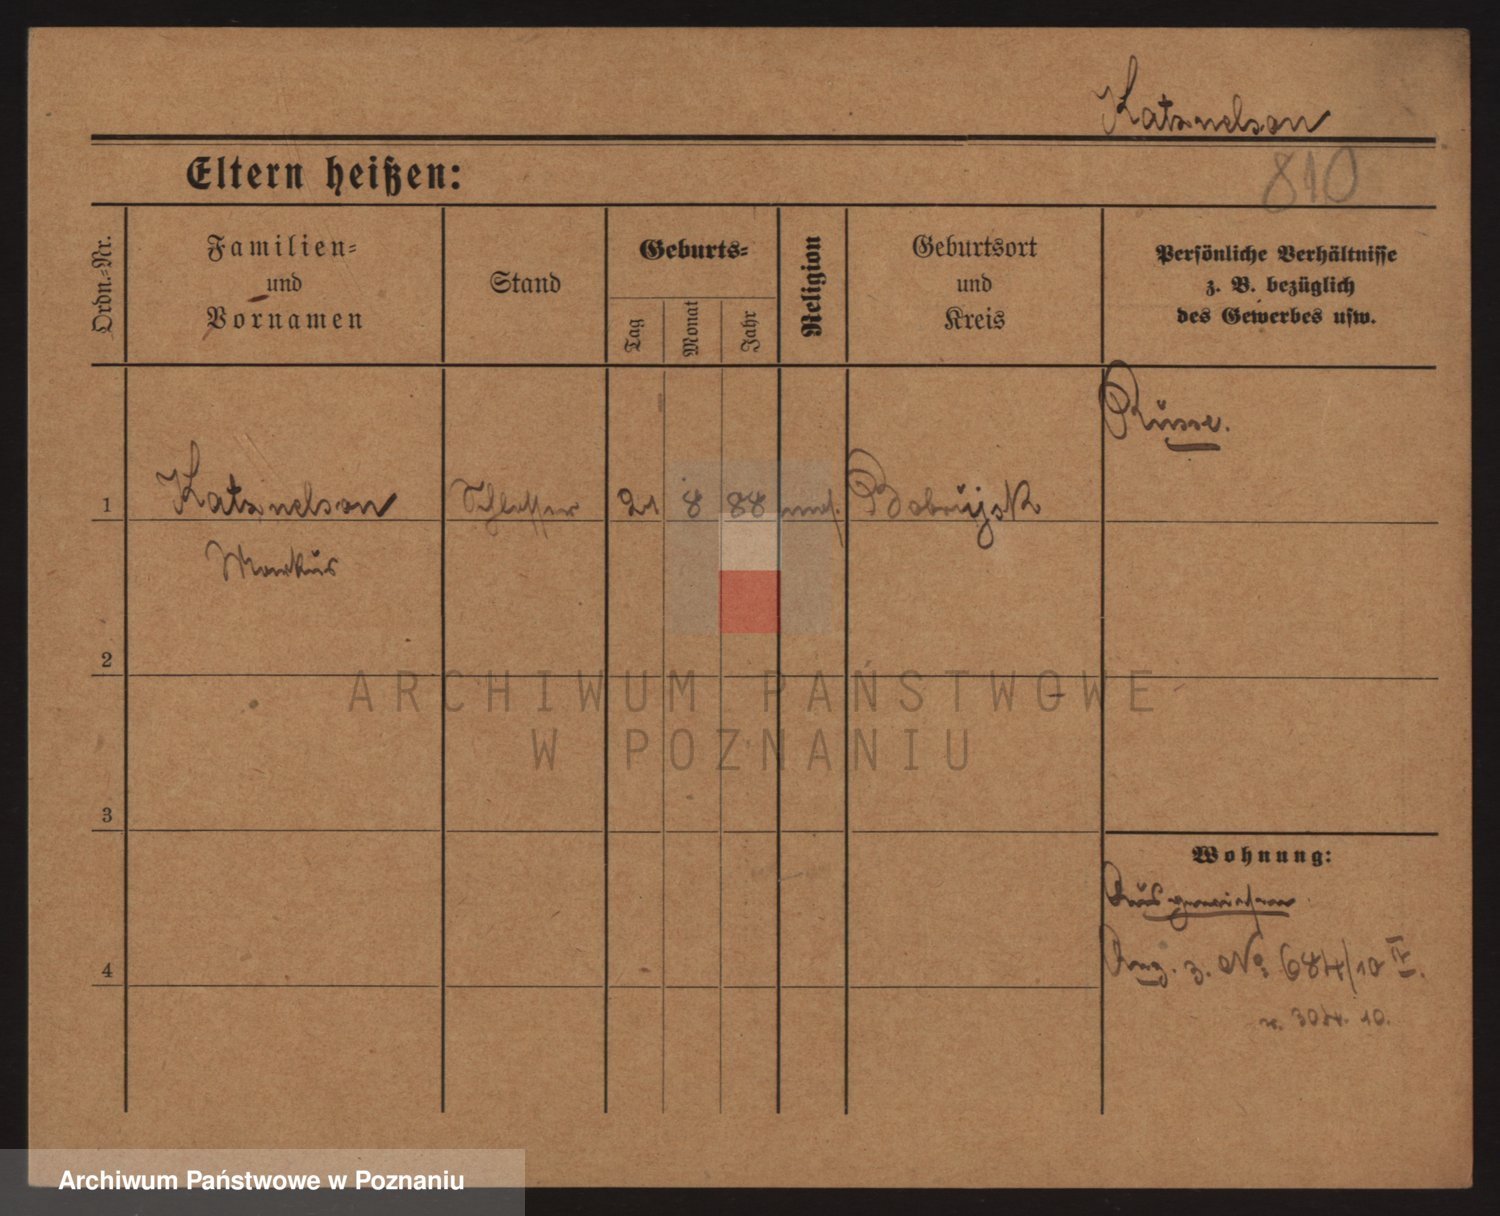 Katsnelson
Eltern heißen:
810
Ordn.-Nr.
Familien-
und
Vornamen
Stand
Geburts-
Tag
Monat
Jahr
Religion
Geburtsort
und
Kreis
Persönliche Verhältnisse
z. B. bezüglich
des Gewerbes usw.
Russe.
1 Katsnelson Schlosser 21 8 88 mos. Bobrujsk
Markus
2
3
4
Wohnung:
Ausgewiesen
Ang. z. No. 684/10 IV.
v. 30/4. 10.
ARCHIWUM PAŃSTWOWE
W POZNANIU
Archiwum Państwowe w Poznaniu